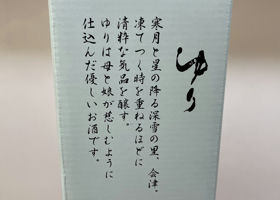 ゆり
寒月と星の降る深雪の里、会津。
凍てつく時を重ねるほどに
清粋な気品を醸す。
ゆりは母と娘が慈しむように
仕込んだ優しいお酒です。